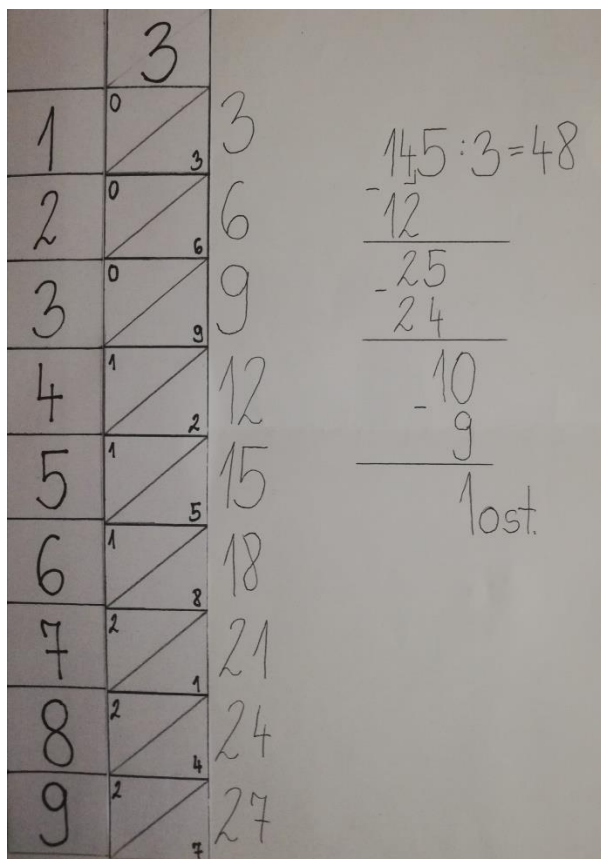 3
1 0 3 3
2 0 6 6
3 0 9 9
4 1 2 12
5 1 5 15
6 1 8 18
7 2 1 21
8 2 4 24
9 2 7 27
145:3=48
-12
-25
24
-10
9
1ost.